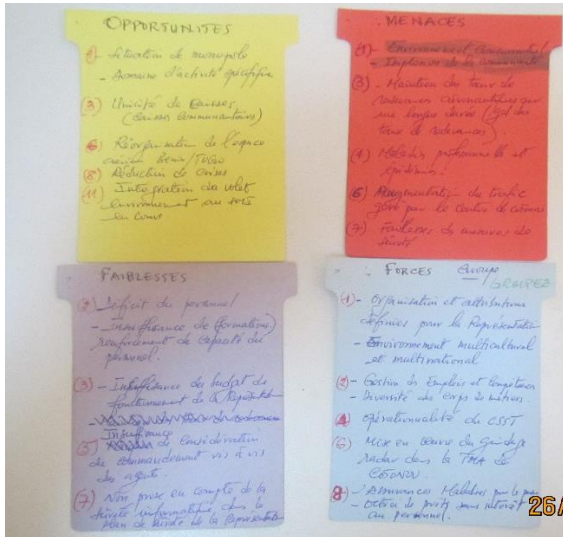 OPPORTUNITES
- Situation de monopole
- Domaine d'activité spécifique
(3) Unicité de caisses
(caisses communautaires)
(6) Réorganisation de l'espace
aérien Bénin/TOGO
(8) Réduction de crises
(11) Intégration du volet
environnement au
en cours
MENACES
(1) - Environnement
- Implance de la communauté
(3) - Maintien des taux de
redevances aéronautiques sur
une longue durée (
taux de redevances)
(4) Maladies professionnelles et
épidémies!
(6) Augmentation de trafic
géré par le centre de
(7) Faiblesses des mesures de
sûreté
FAIBLESSES
(2) - Déficit du personnel
- Insuffisance de formations
renforcement de capacité du
personnel.
(3) - Insuffisance du budget de
fonctionnement de la Représentation
Insuffisance
(5) de considération
du commandement vis à vis
des agents.
(7) Non prise en compte de la
sûreté informatique dans le
plan de sûreté de la Représentation
FORCES Groupe
GROUPE 2
(1) - Organisation et attributions
définies pour la Représentation
- Environnement multiculturel
et multinational
(2) - Gestion des Emplois et Compétences
- Diversité des corps de métiers
(4) Opérationnalité du CSST
(6) Mise en œuvre du Guidage
radar dans la TMA de
COTONOU
8 - Assurances Maladies pour le
- Octroi de prêts sans intérêt
au personnel.
26/